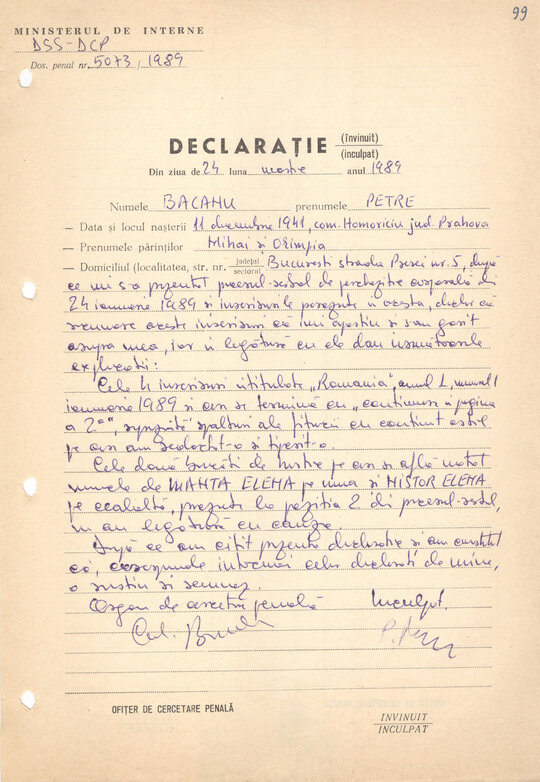 99
MINISTERUL DE INTERNE
DSS-DCP
Dos. penal nr. 5073 / 1989
DECLARAȚIE (învinuit)
(inculpat)
Din ziua de 24 luna martie anul 1989
Numele BACANU prenumele PETRE
— Data și locul nașterii 11 decembrie 1941, com. Homoriciu jud Prahova
— Prenumele părinților Mihai si Olimpia
— Domiciliul (localitatea, str. nr. județul București strada Pisci nr. 5, după
sectorul
ce mi s-a prezentat procesul-verbal de percheziție corporală din
24 ianuarie 1989 si inscrisurile perezute in acesta, declar că
recunosc aceste inscrisuri că imi apartin si s-au gasit
asupra mea, iar in legătură cu ele dau următoarele
explicatii:
Cele 4 inscrisuri intitulate „Romania", anul 1, numarul 1
ianuarie 1989 si care se termină cu „continuare in pagina
a 2-a", reprezintă spalturi ale fituicii cu continut ostil
pe care am redactat-o si tiparit-o.
Cele două bucăti de hirtie pe care se află notat
numele de MANTA ELENA pe una si NISTOR ELENA
pe cealaltă, prezente la pozitia 2 din procesul-verbal,
n-au legătură cu cauza.
După ce am citit prezenta declaratie si am constatat
că, corespunde intocmai celor declarate de mine,
o sustin si semnez.
Organ de cercetare penală Inculpat
OFIȚER DE CERCETARE PENALĂ
INVINUIT
INCULPAT